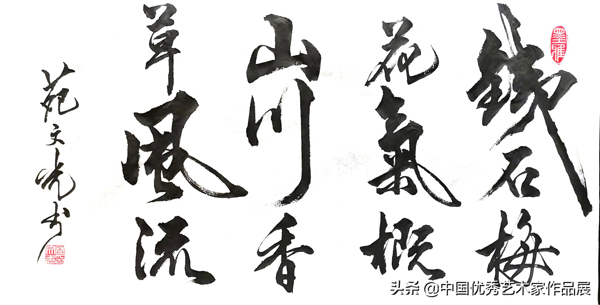 鐵石梅
花氣概
山川香
草風流
苑文光书
头条@中国优秀艺术家作品展